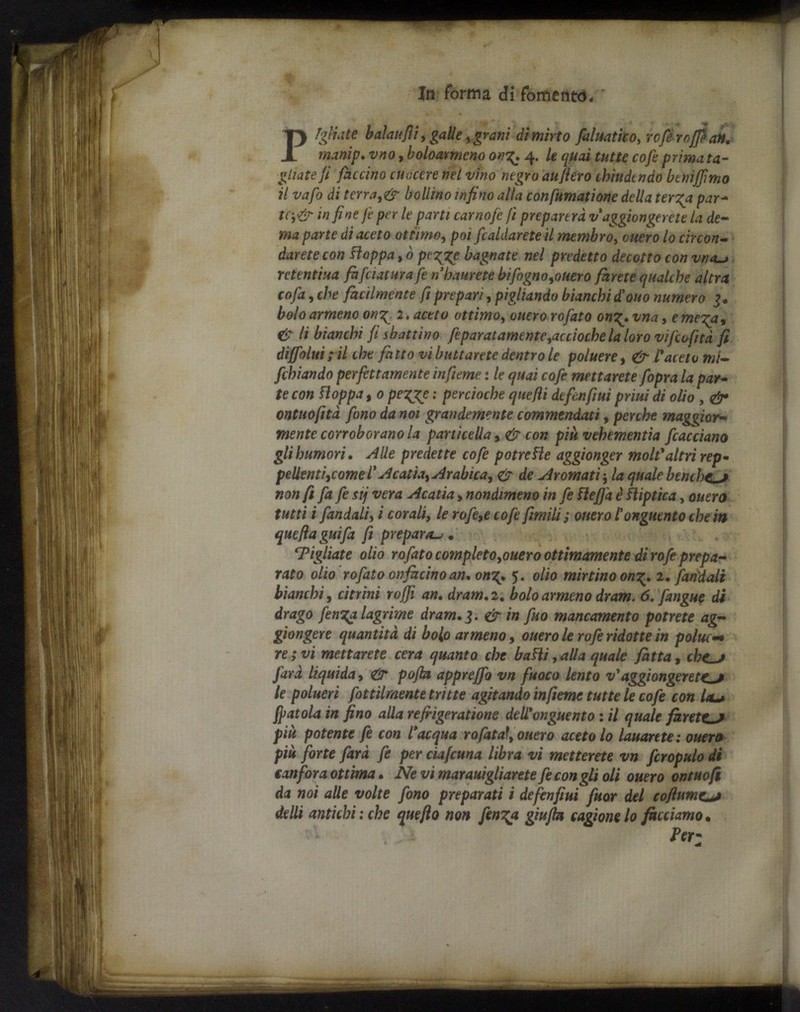 In forma di fomento.
PIgliate balauſti, galle, grani di mirto ſaluatico, roſe roſſe an.
manip. vno, boloarmeno onʒ. 4. le quai tutte coſe prima ta-
gliate ſi faccino cuocere nel vino negro auſtero chiudendo beniſſimo
il vaſo di terra, & bollino inſino alla conſumatione della terʒa par-
te; & in fine ſe per le parti carnoſe ſi preparerà v'aggiongerete la de-
ma parte di aceto ottimo, poi ſcaldarete il membro, ouero lo circon-
darete con ſtoppa, ò peʒʒe bagnate nel predetto decotto con vna
retentiua faſciatura ſe n'haurete biſogno, ouero farete qualche altra
coſa, che facilmente ſi prepari, pigliando bianchi d'ouo numero 3.
bolo armeno onʒ. 2. aceto ottimo, ouero roſato onʒ. vna, e meʒa,
& li bianchi ſi sbattino ſeparatamente, accioche la loro viſcoſità ſi
diſſolui; il che fatto vi buttarete dentro le poluere, & l'aceto mi-
ſchiando perfettamente inſieme: le quai coſe mettarete ſopra la par-
te con ſtoppa, o peʒʒe: percioche queſti defenſiui priui di olio, &
ontuoſità ſono da noi grandemente commendati, perche maggior-
mente corroborano la particella, & con più vehementia ſcacciano
gli humori. Alle predette coſe potreſte aggionger molt'altri rep-
pellenti, come l'Acatia, Arabica, & de Aromati; la quale benche
non ſi ſa ſe sij vera Acatia, nondimeno in ſe ſteſſa è ſtiptica, ouero
tutti i ſandali, i corali, le roſe, e coſe ſimili; ouero l'onguento che in
queſta guiſa ſi prepara.
Pigliate olio roſato completo, ouero ottimamente di roſe prepa-
rato olio roſato onfacino an. onʒ. 5. olio mirtino onʒ. 2. ſandali
bianchi, citrini roſſi an. dram. 2. bolo armeno dram. 6. ſangue di
drago ſenʒa lagrime dram. 3. & in ſuo mancamento potrete ag-
giongere quantità di bolo armeno, ouero le roſe ridotte in polue-
re; vi mettarete cera quanto che baſti, alla quale fatta, che
ſarà liquida, & poſta appreſſo vn fuoco lento v'aggiongerete
le polueri ſottilmente tritte agitando inſieme tutte le coſe con la
ſpatola in fino alla refrigeratione dell'onguento: il quale farete
più potente ſe con l'acqua roſata!, ouero aceto lo lauarete: ouero
più forte ſarà ſe per ciaſcuna libra vi metterete vn ſcropulo di
canfora ottima. Ne vi marauigliarete ſe con gli oli ouero ontuoſi
da noi alle volte ſono preparati i defenſiui fuor del coſtume
delli antichi: che queſto non ſenʒa giuſta cagione lo facciamo.
Per-